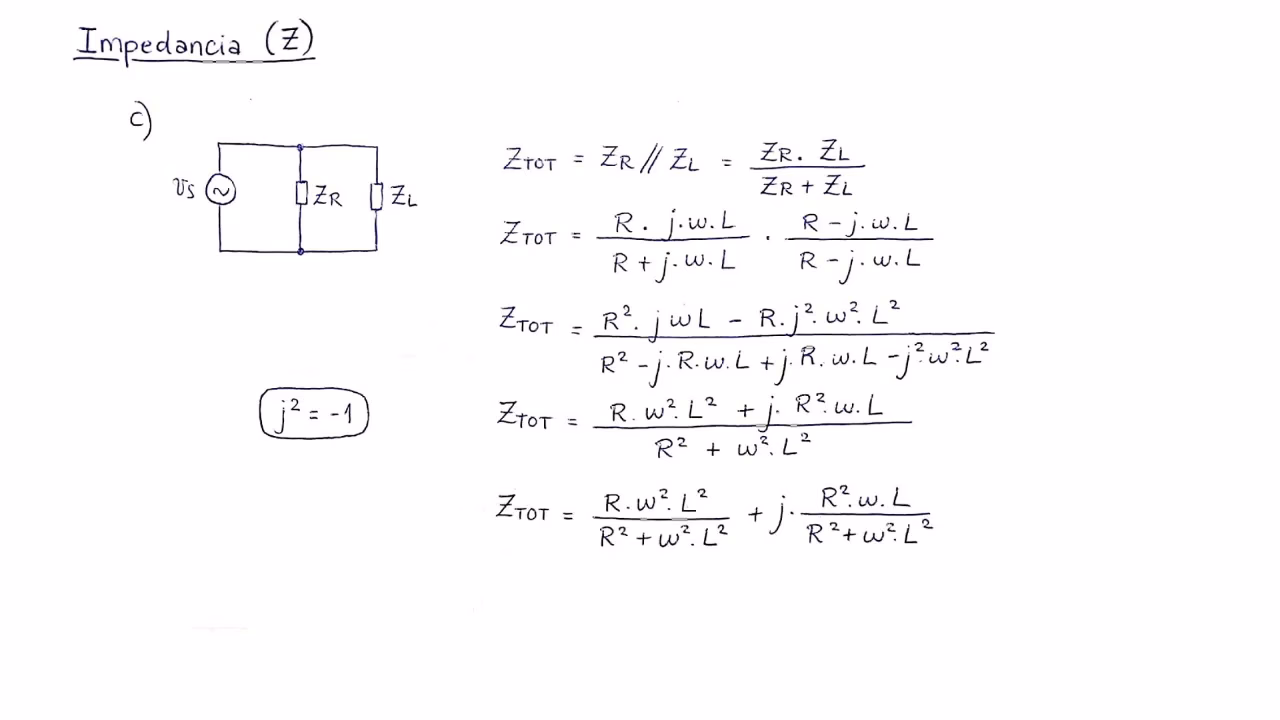 Impedancia (Z)
c)
Vs ZR ZL
ZTOT = ZR // ZL = ZR . ZL / ZR + ZL
ZTOT = R . j.w.L / R + j.w.L . R - j.w.L / R - j.w.L
ZTOT = R². j w L - R.j².w².L² / R² - j.R.w.L + j.R.w.L - j².w².L²
j² = -1
ZTOT = R.w².L² + j.R².w.L / R² + w².L²
ZTOT = R.w².L² / R² + w².L² + j. R².w.L / R² + w².L²